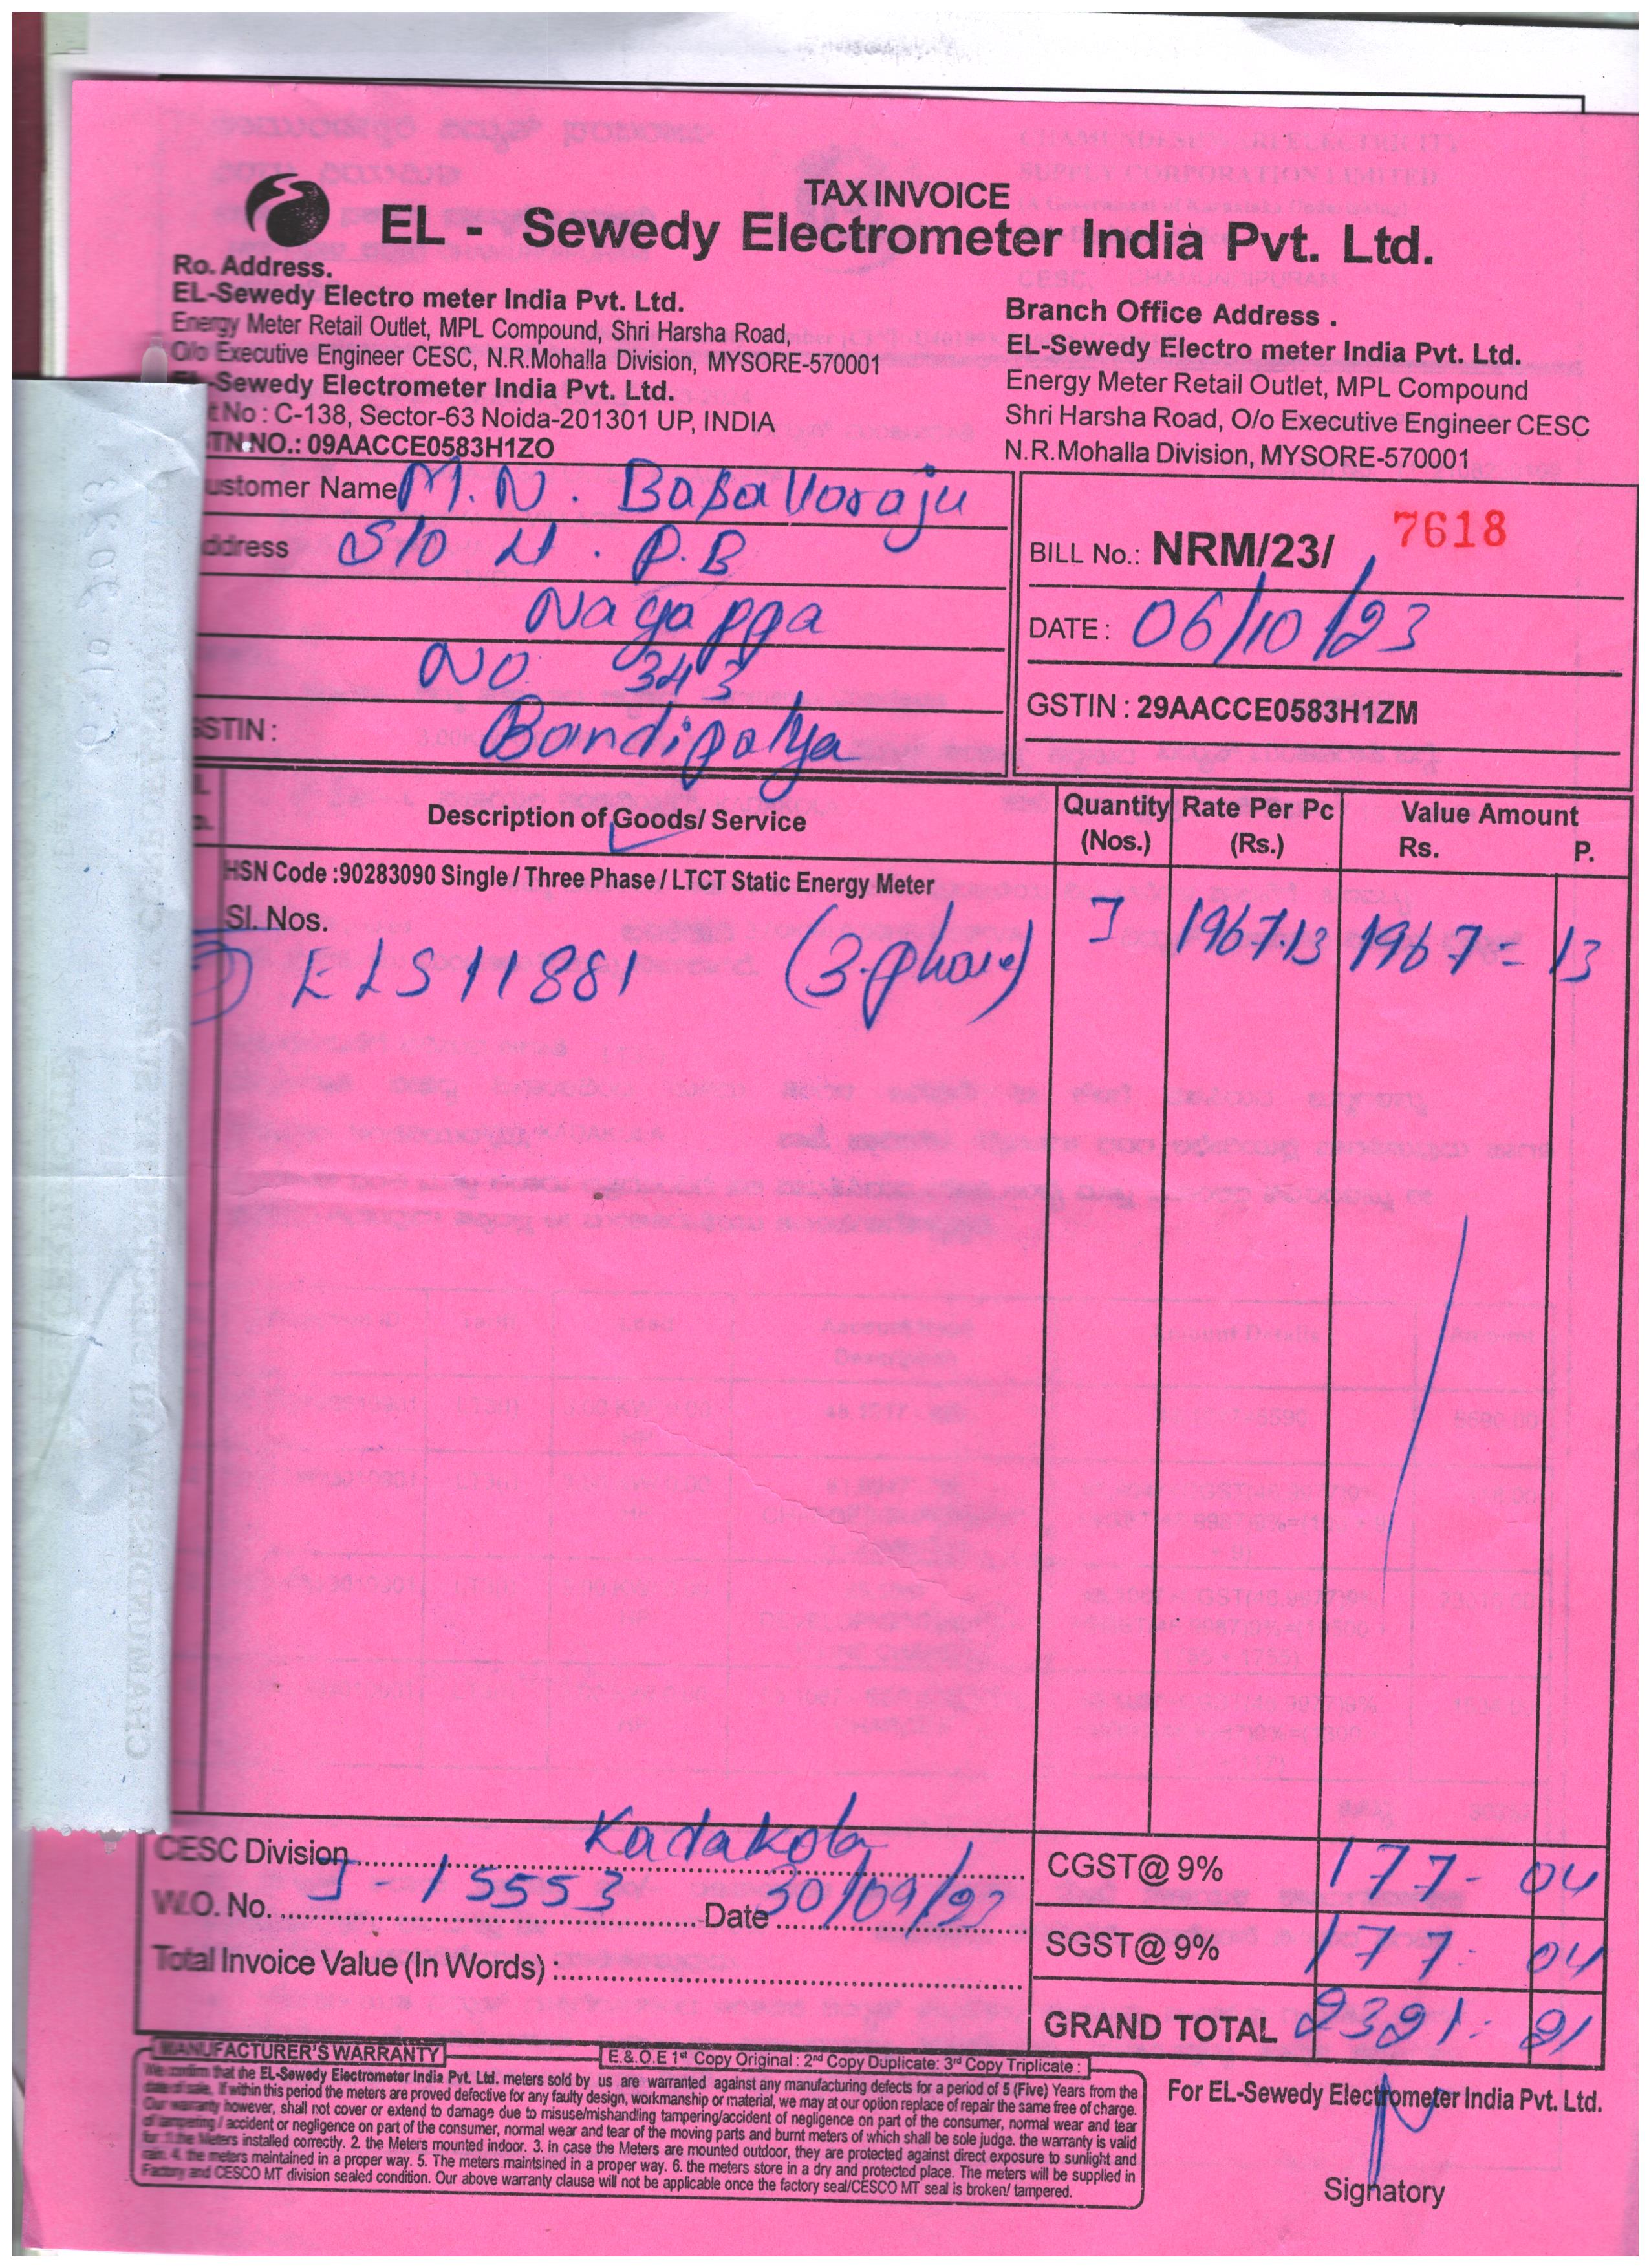 TAX INVOICE
EL - Sewedy Electrometer India Pvt. Ltd.
Ro. Address.
EL-Sewedy Electro meter India Pvt. Ltd.
Energy Meter Retail Outlet, MPL Compound, Shri Harsha Road,
O/o Executive Engineer CESC, N.R.Mohalla Division, MYSORE-570001
EL-Sewedy Electrometer India Pvt. Ltd.
t No : C-138, Sector-63 Noida-201301 UP, INDIA
TN NO.: 09AACCE0583H1ZO
Branch Office Address .
EL-Sewedy Electro meter India Pvt. Ltd.
Energy Meter Retail Outlet, MPL Compound
Shri Harsha Road, O/o Executive Engineer CESC
N.R.Mohalla Division, MYSORE-570001
ustomer Name M. N. Basavaraju
ddress S/o H. P. B
Nagappa
No 343
STIN : Bandipalya
BILL No.: NRM/23/ 7618
DATE : 06/10/23
GSTIN : 29AACCE0583H1ZM
Description of Goods/ Service Quantity (Nos.) Rate Per Pc (Rs.) Value Amount Rs. P.
HSN Code :90283090 Single / Three Phase / LTCT Static Energy Meter
Sl. Nos.
ELS11881 (3-phase) 1 1967.13 1967 = 13
CESC Division Kadakola
W.O. No. J-15553 Date 30/09/23
Total Invoice Value (In Words) :
CGST@ 9% 177 - 04
SGST@ 9% 177 - 04
GRAND TOTAL 2321 : 21
MANUFACTURER'S WARRANTY
E.& O.E 1st Copy Original : 2nd Copy Duplicate: 3rd Copy Triplicate :
We confirm that the EL-Sewedy Electrometer India Pvt. Ltd. meters sold by us are warranted against any manufacturing defects for a period of 5 (Five) Years from the
date of sale. If within this period the meters are proved defective for any faulty design, workmanship or material, we may at our option replace of repair the same free of charge.
Our warranty however, shall not cover or extend to damage due to misuse/mishandling tampering/accident of negligence on part of the consumer, normal wear and tear
of tampering / accident or negligence on part of the consumer, normal wear and tear of the moving parts and burnt meters of which shall be sole judge. the warranty is valid
for 1.the Meters installed correctly. 2. the Meters mounted indoor. 3. in case the Meters are mounted outdoor, they are protected against direct exposure to sunlight and
rain. 4. the meters maintained in a proper way. 5. The meters maintsined in a proper way. 6. the meters store in a dry and protected place. The meters will be supplied in
Factory and CESCO MT division sealed condition. Our above warranty clause will not be applicable once the factory seal/CESCO MT seal is broken/ tampered.
For EL-Sewedy Electrometer India Pvt. Ltd.
Signatory